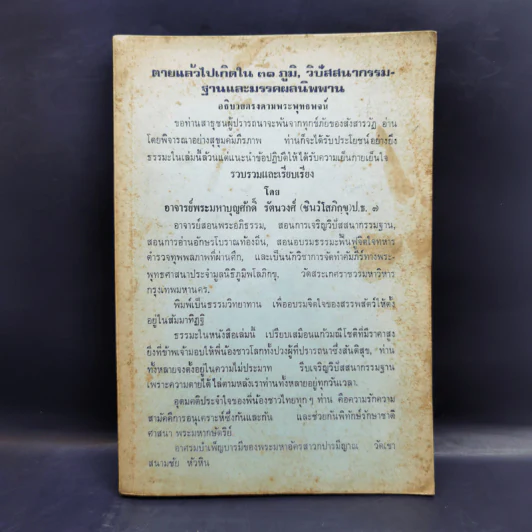 ตายแล้วไปเกิดใน ๓๑ ภูมิ, วิปัสสนากรรม-
ฐานและมรรคผลนิพพาน
อธิบายตรงตามพระพุทธพจน์
ขอท่านสาธุชนผู้ปรารถนาจะพ้นจากทุกข์ภัยของสังสารวัฏ อ่าน
โดยพิจารณาอย่างสุขุมคัมภีรภาพ ท่านก็จะได้รับประโยชน์อย่างยิ่ง
ธรรมะในเล่มนี้ล้วนแต่แนะนำข้อปฏิบัติให้ได้รับความเย็นกายเย็นใจ
รวบรวมและเรียบเรียง
โดย
อาจารย์พระมหาบุญศักดิ์ รัตนวงศ์ (ชินวํโสภิกขุ) ป.ธ. ๗
อาจารย์สอนพระอภิธรรม, สอนการเจริญวิปัสสนากรรมฐาน,
สอนการอ่านอักษรโบราณท้องถิ่น, สอนอบรมธรรมะฟื้นฟูจิตใจทหาร
ตำรวจทุพพลภาพที่ผ่านศึก, และเป็นนักวิชาการจัดทำคัมภีร์ทางพระ-
พุทธศาสนาประจำมูลนิธิภูมิพโลภิกขุ, วัดสระเกศราชวรมหาวิหาร
กรุงเทพมหานคร.
พิมพ์เป็นธรรมวิทยาทาน เพื่ออบรมจิตใจของสรรพสัตว์ให้ตั้ง
อยู่ในสัมมาทิฏฐิ
ธรรมะในหนังสือเล่มนี้ เปรียบเสมือนแก้วมณีโชติที่มีราคาสูง
ยิ่งที่ข้าพเจ้ามอบให้พี่น้องชาวโลกทั้งปวงผู้ที่ปรารถนาซึ่งสันติสุข, ท่าน
ทั้งหลายจงตั้งอยู่ในความไม่ประมาท รีบเจริญวิปัสสนากรรมฐาน
เพราะความตายได้ไล่ตามหลังเราท่านทั้งหลายอยู่ทุกวันเวลา.
อุดมคติประจำใจของพี่น้องชาวไทยทุกๆ ท่าน คือความรักความ
สามัคคีการอนุเคราะห์ซึ่งกันและกัน และช่วยกันพิทักษ์รักษาชาติ
ศาสนา พระมหากษัตริย์.
อาศรมบำเพ็ญบารมีของพระมหาอัครสาวกปารมีญาณ วัดเขา
สนามชัย หัวหิน